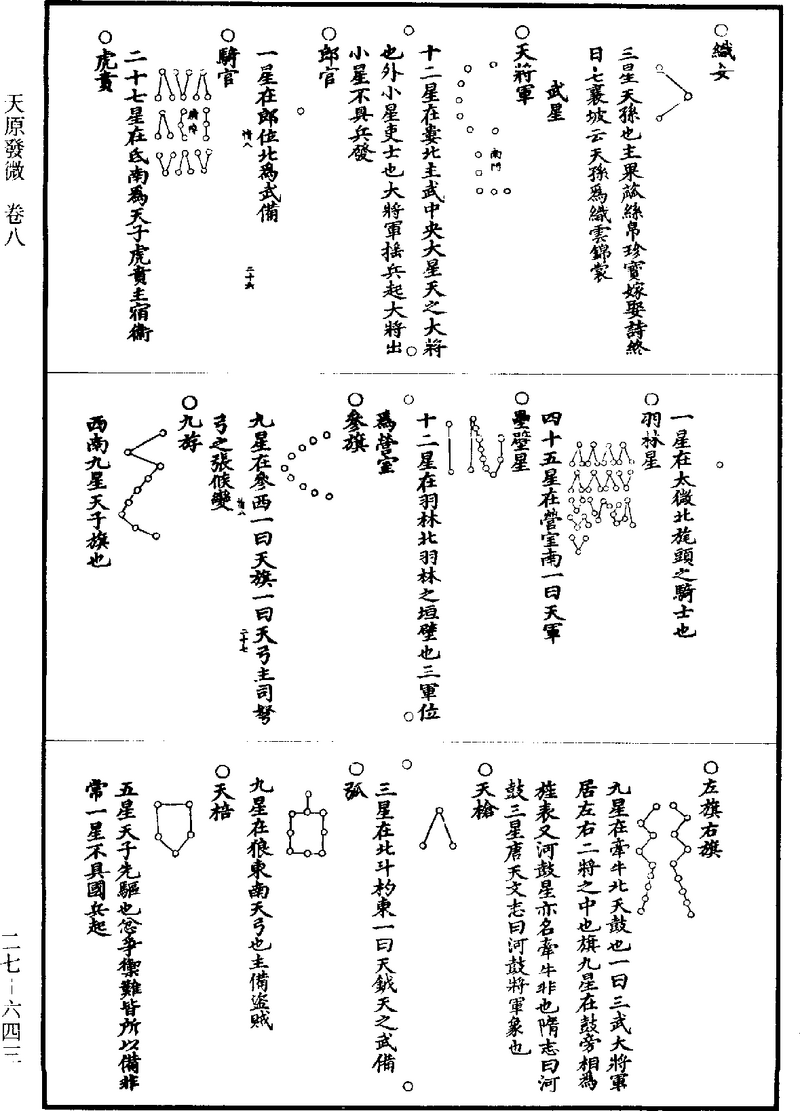 天原發微 卷八
二七-六四三
織女
三星天孫也主果蓏絲帛珍寶嫁娶詩終
日七襄坡云天孫爲織雲錦裳
武星
天將軍
南門
十二星在婁北主武中央大星天之大將
也外小星吏士也大將軍搖兵起大將出
小星不具兵發
郎官
一星在郎位北爲武備
騎官
二十六
二十七星在氐南爲天子虎賁主宿衛
虎賁
一星在太微北旄頭之騎士也
羽林星
四十五星在營室南一曰天軍
壘壁星
十二星在羽林北羽林之垣壁也三軍位
爲營室
參旗
九星在參西一曰天旗一曰天弓主司弩
弓之張候變
二十七
九斿
西南九星天子旗也
左旗右旗
九星在牽牛北天鼓也一曰三武大將軍
居左右二將之中也旗九星在鼓旁相爲
旌表又河鼓星亦名牽牛非也隋志曰河
鼓三星唐天文志曰河鼓將軍象也
天槍
三星在北斗杓東一曰天鉞天之武備
弧
九星在狼東南天弓也主備盜賊
天棓
五星天子先驅也忿爭禦難皆所以備非
常一星不具國兵起